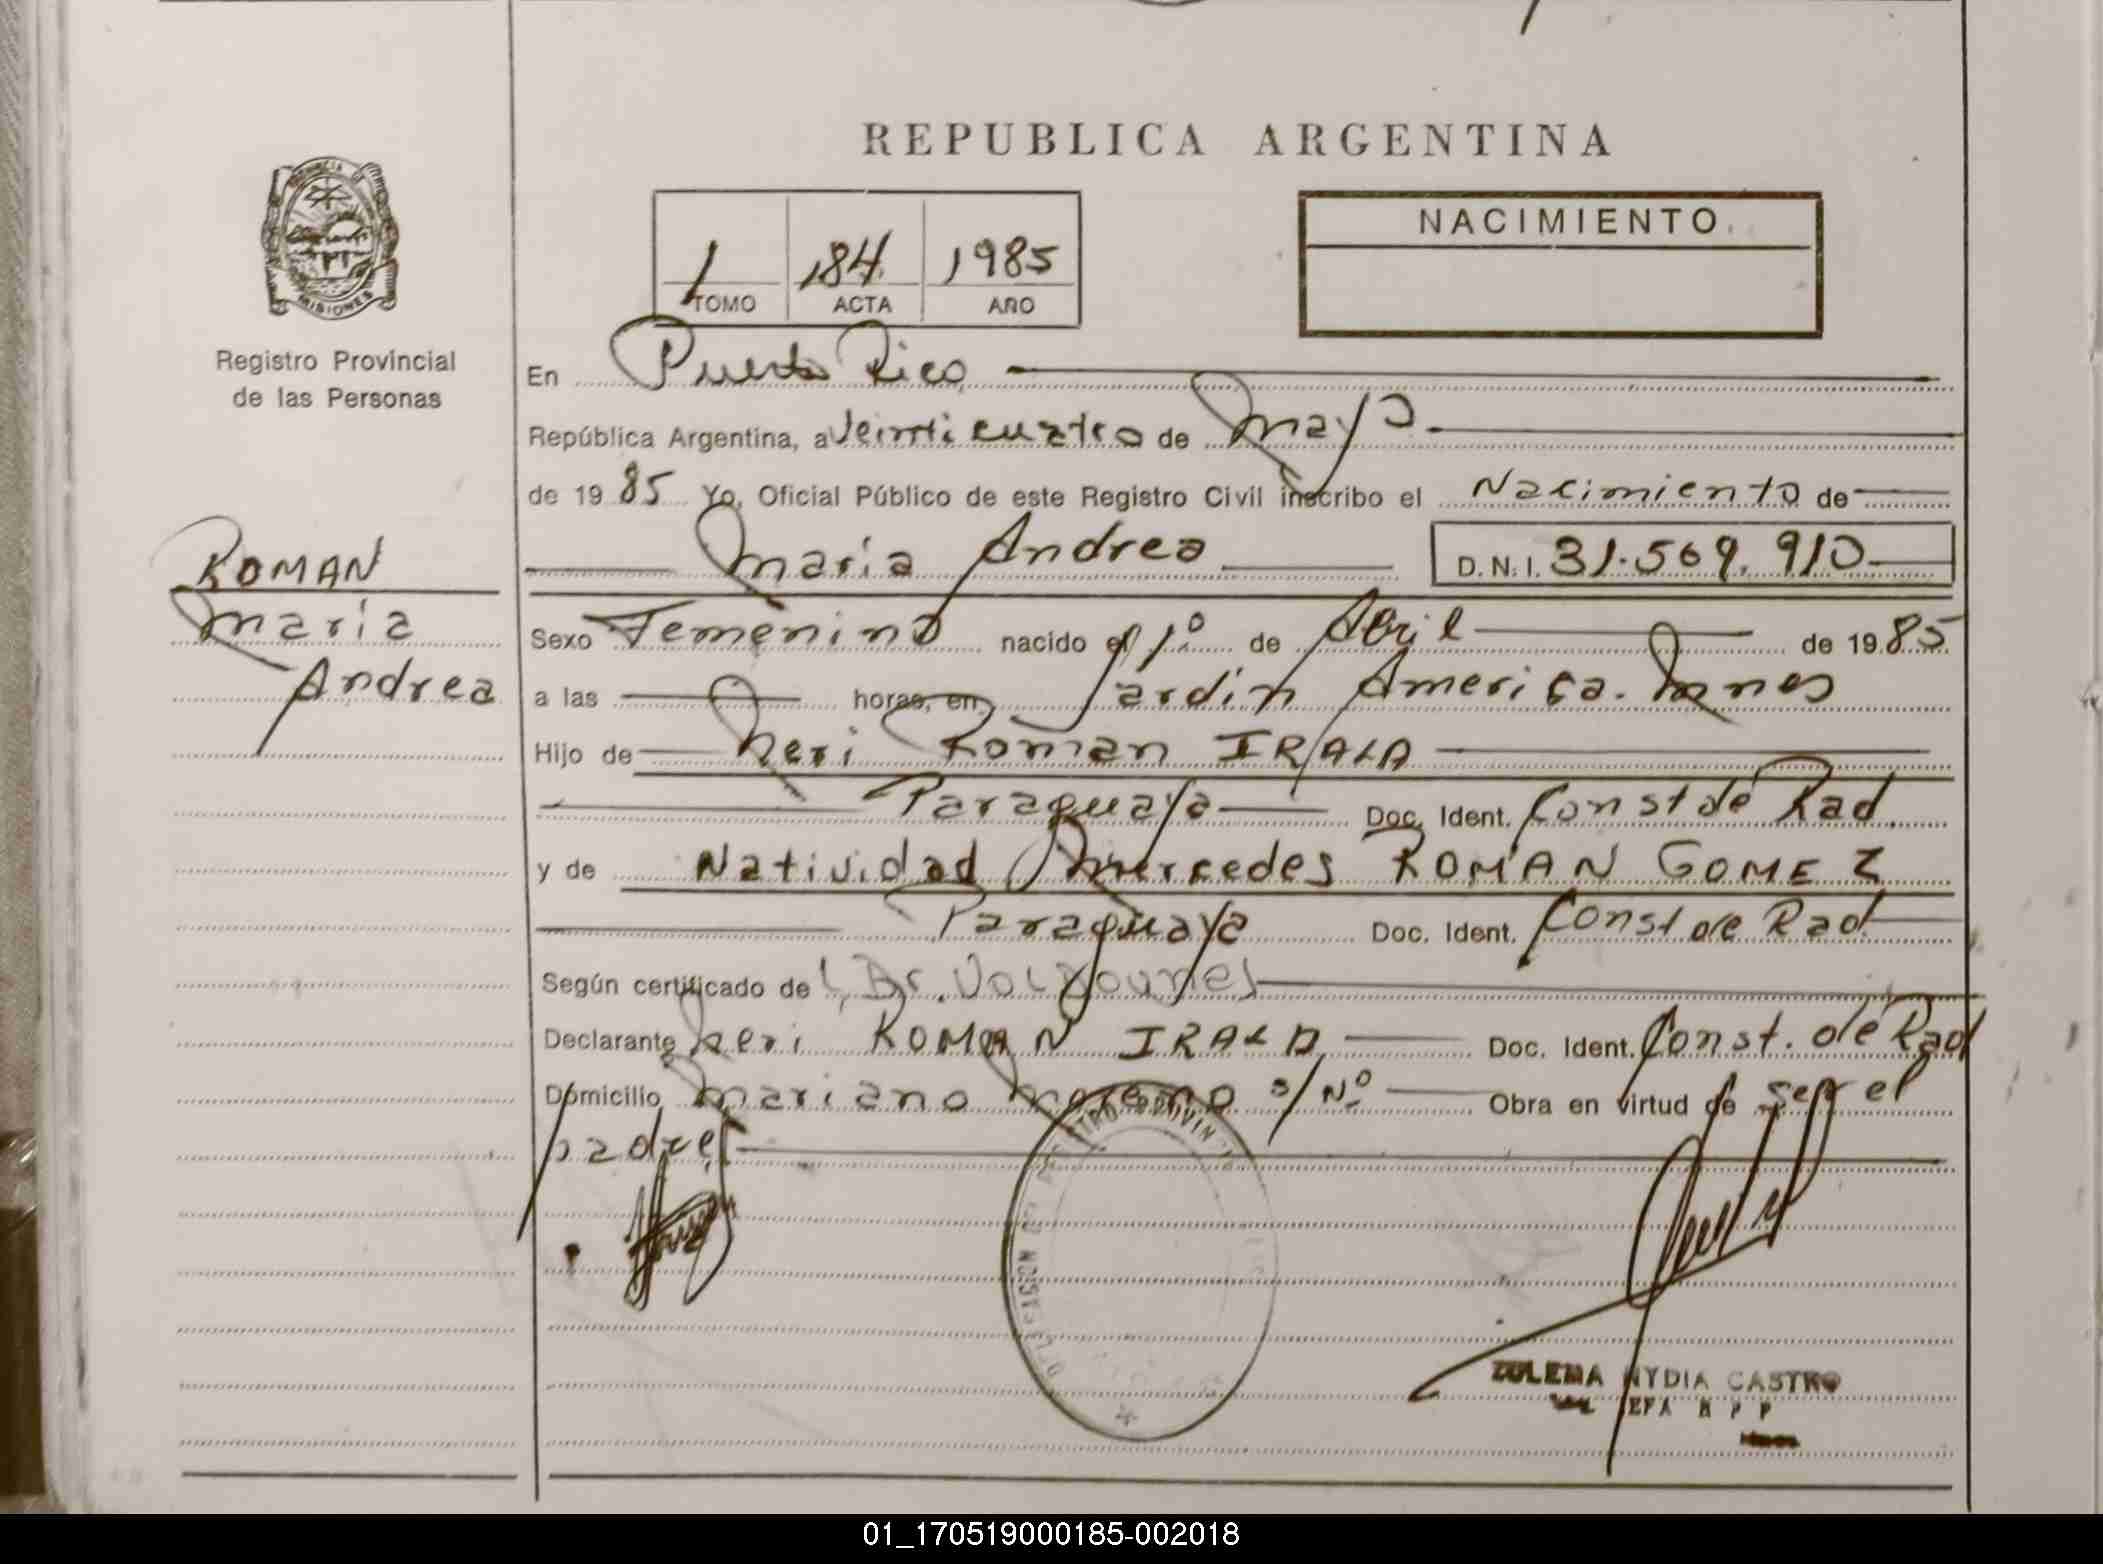 REPUBLICA ARGENTINA
PROVINCIA DE
MISIONES
Registro Provincial
de las Personas
1 184 1985
TOMO ACTA AÑO
NACIMIENTO
En Puerto Rico
República Argentina, a Veinticuatro de Mayo
de 19 85 Yo, Oficial Público de este Registro Civil inscribo el Nacimiento de
Maria Andrea D.N.I. 31.569.910
ROMAN
Maria
Andrea
Sexo Femenino nacido el 1º de Abril de 19 85
a las horas, en Jardin America. Mnes
Hijo de Neri Roman IRALA
Paraguaya Doc. Ident. Const de Rad.
y de Natividad Mercedes ROMAN GOMEZ
Paraguaya Doc. Ident. Const de Rad
Según certificado de Dr.
Declarante Neri ROMAN IRALA Doc. Ident. Const. de Rad
Domicilio Mariano Moreno s/Nº Obra en virtud de ser el
padre
ZULEMA NYDIA CASTRO
JEFA R P P
01_170519000185-002018